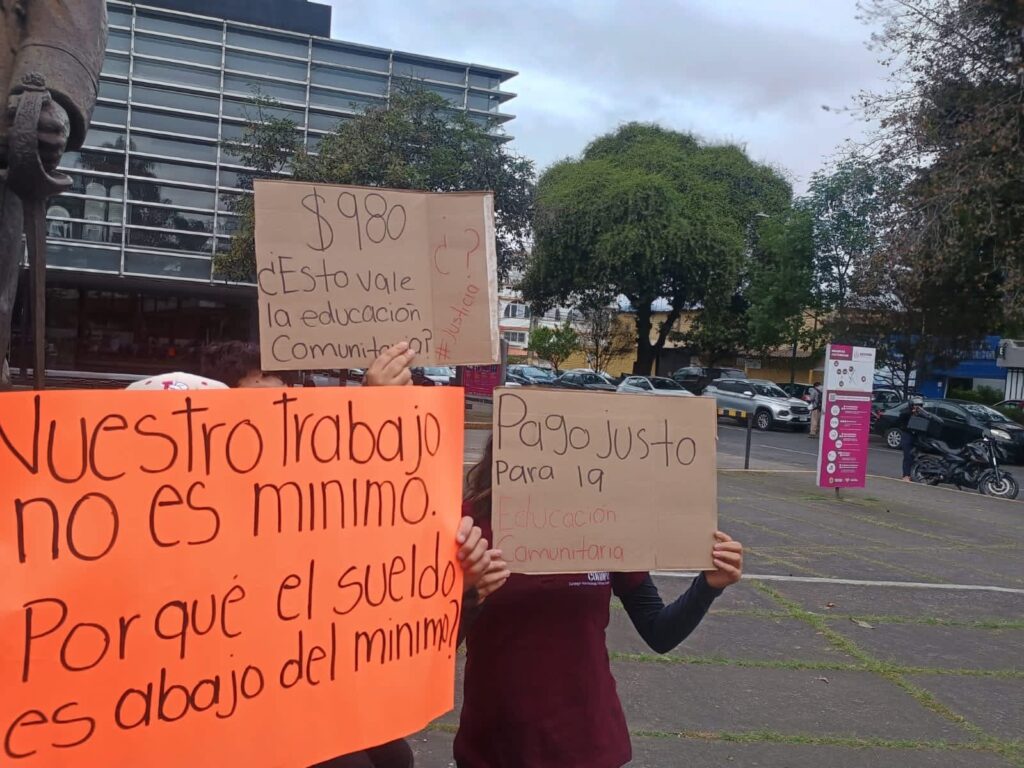 $980
¿Esto vale
la educación
Comunitaria?
¿?
#Justicia
Nuestro trabajo
no es minimo.
Porqué el sueldo
es abajo del minimo?
Pago justo
Para la
Educación
Comunitaria